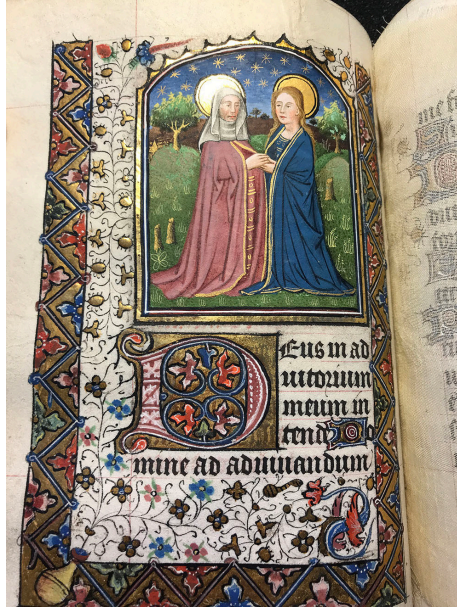 DEus in ad
iutorium
meum in
tende Do
mine ad adiuuandum